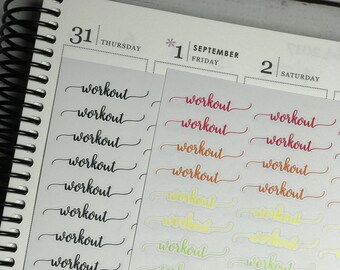 31 THURSDAY *1 SEPTEMBER FRIDAY 2 SATURDAY
workout workout workout
workout workout workout
workout workout workout
workout workout workout
workout workout workout
workout workout workout
workout workout workout
workout workout workout